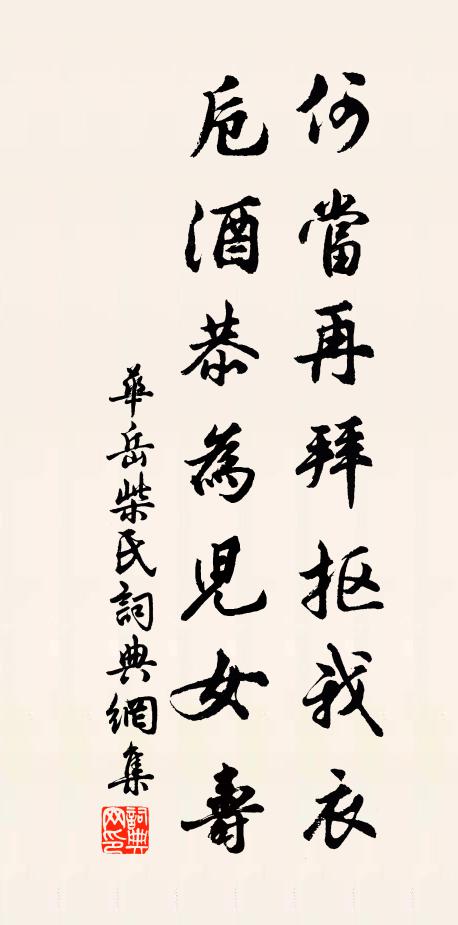 何當再拜抠我衣
卮酒恭為兒女壽
華岳柴氏詞典網集
詞典网印